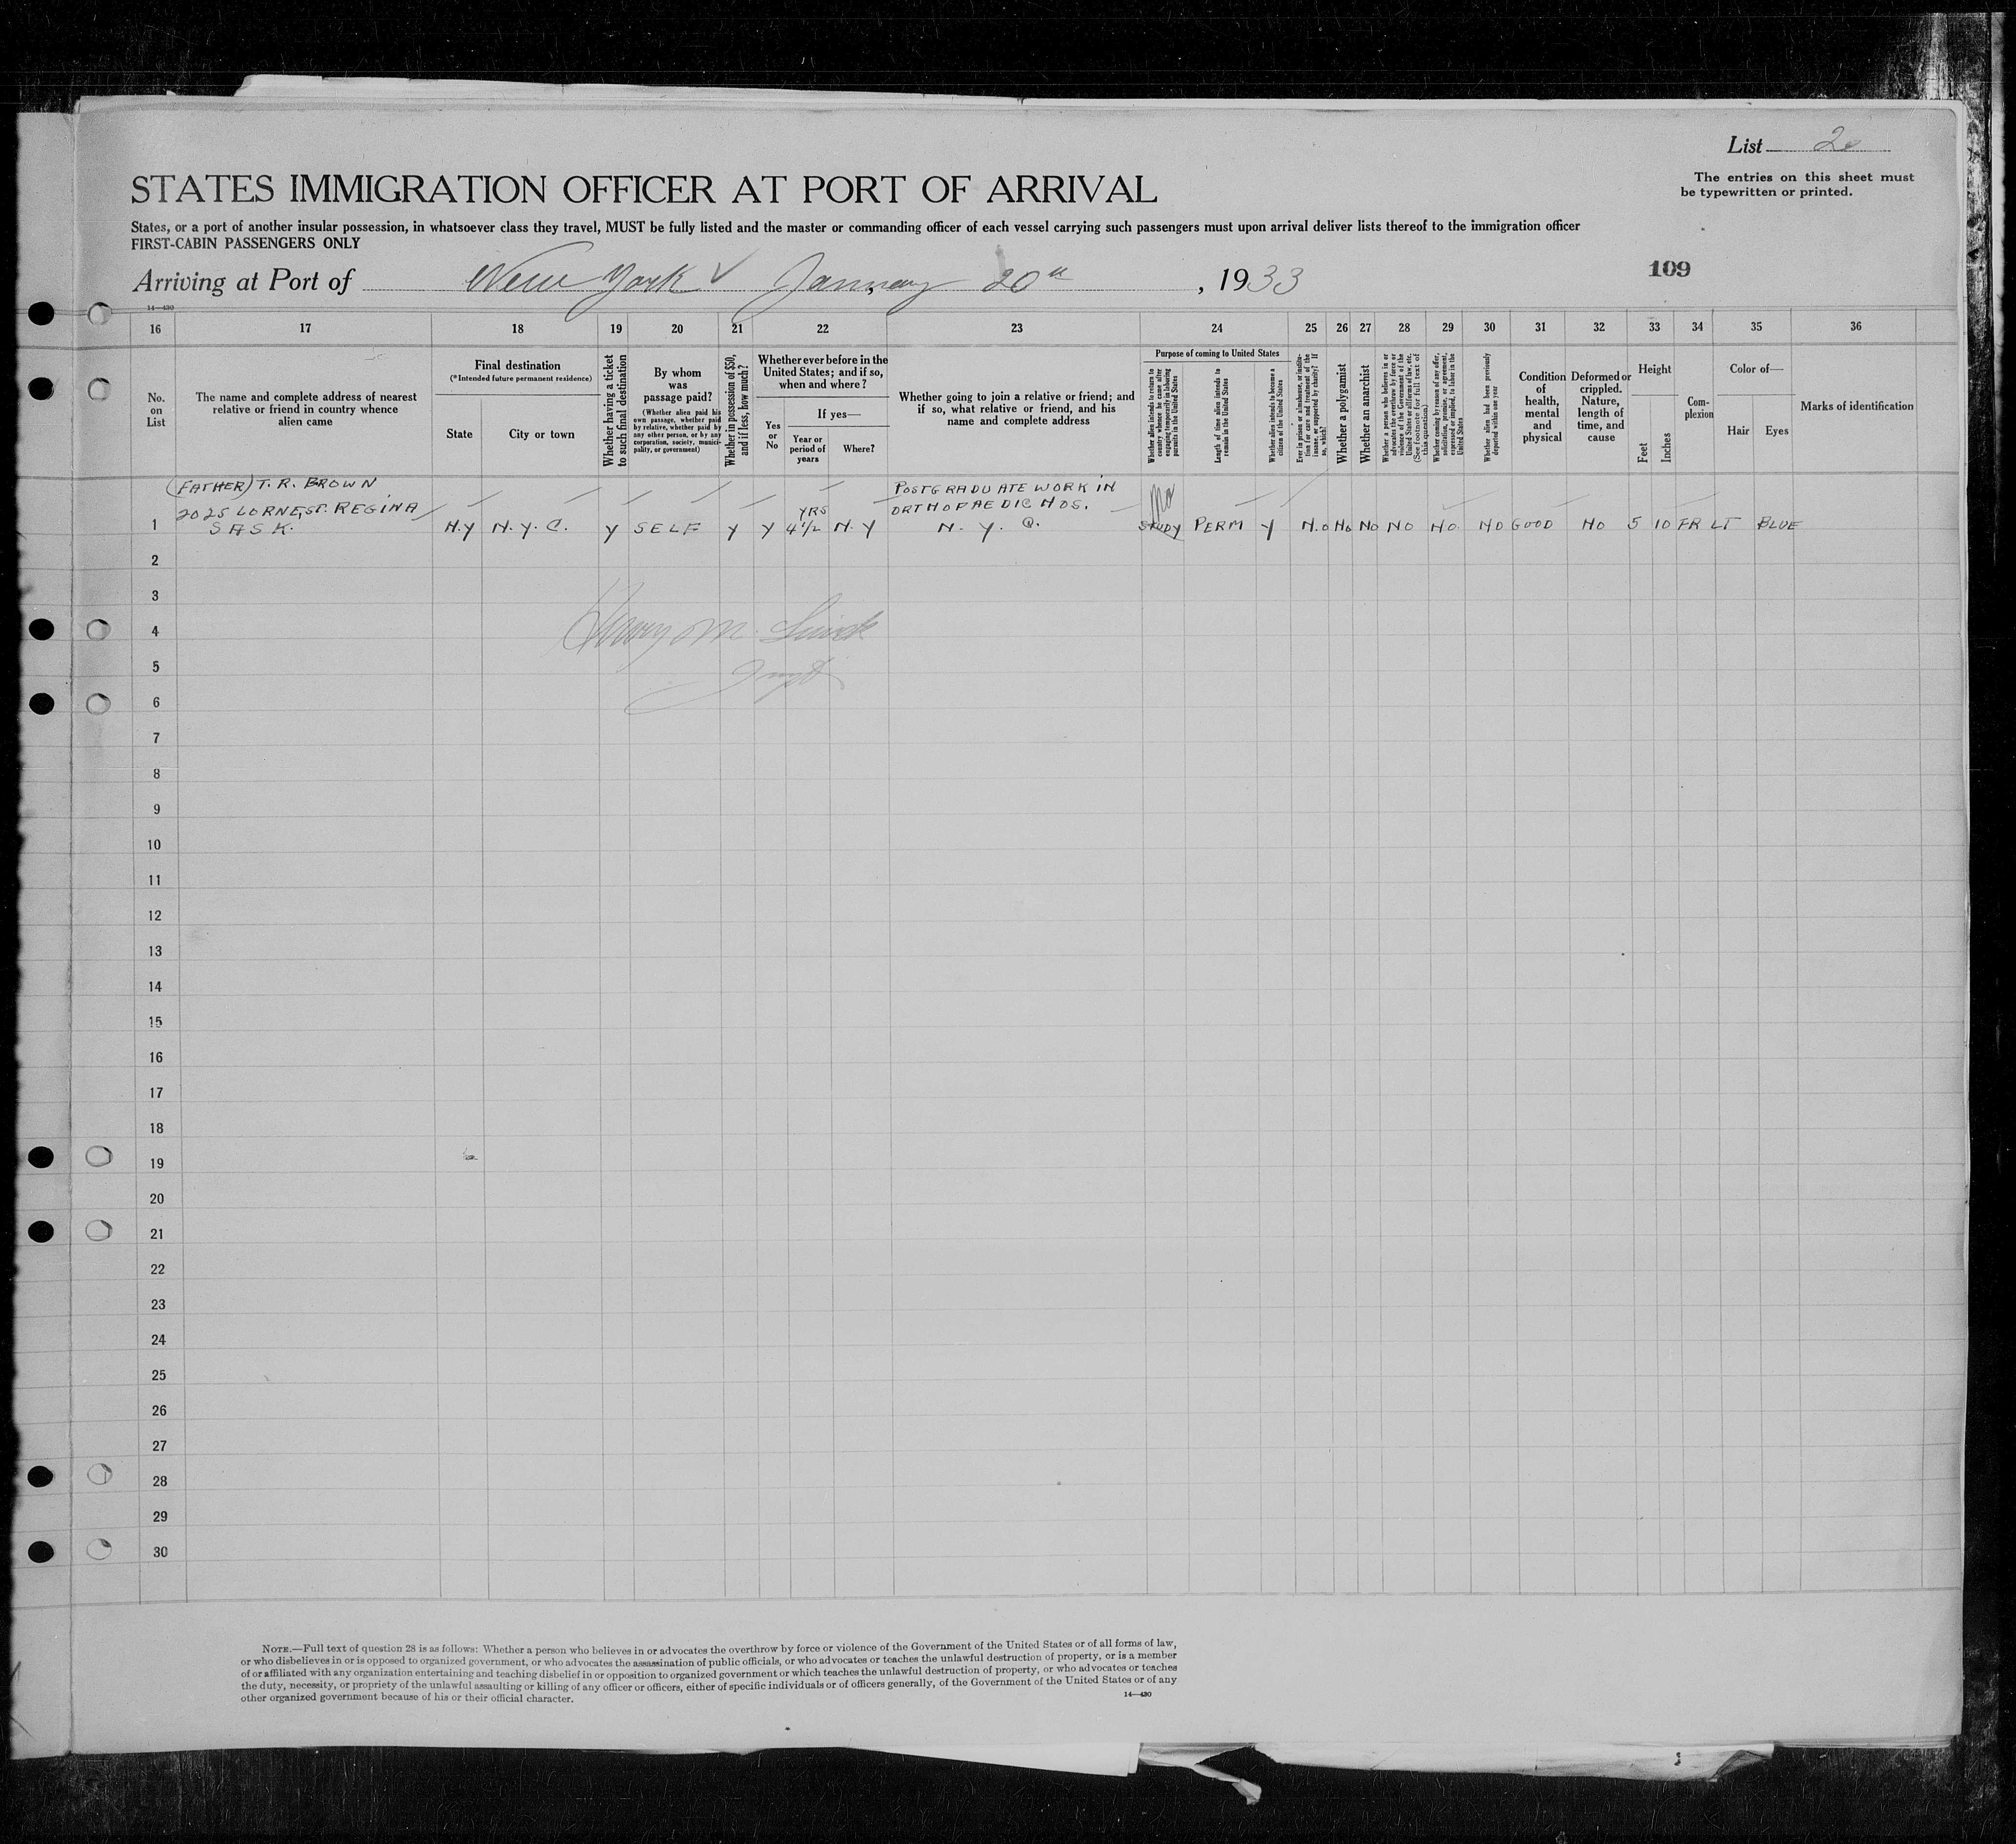 List 2
The entries on this sheet must
be typewritten or printed.
STATES IMMIGRATION OFFICER AT PORT OF ARRIVAL
States, or a port of another insular possession, in whatsoever class they travel, MUST be fully listed and the master or commanding officer of each vessel carrying such passengers must upon arrival deliver lists thereof to the immigration officer
FIRST-CABIN PASSENGERS ONLY
Arriving at Port of New York ✓ January 20th, 1933
109
14—430
16 17 18 19 20 21 22 23 24 25 26 27 28 29 30 31 32 33 34 35 36
No.
on
List
The name and complete address of nearest
relative or friend in country whence
alien came
Final destination
(*Intended future permanent residence)
State
City or town
Whether having a ticket
to such final destination
By whom
was
passage paid?
(Whether alien paid his
own passage, whether paid
by relative, whether paid by
any other person, or by any
corporation, society, munici-
pality, or government)
Whether in possession of $50,
and if less, how much?
Whether ever before in the
United States; and if so,
when and where?
Yes
or
No
If yes—
Year or
period of
years
Where?
Whether going to join a relative or friend; and
if so, what relative or friend, and his
name and complete address
Purpose of coming to United States
Whether alien intends to return to
country whence he came after
engaging temporarily in laboring
pursuits in the United States
Length of time alien intends to
remain in the United States
Whether alien intends to become a
citizen of the United States
Ever in prison or almshouse, or institu-
tion for care and treatment of the
insane, or supported by charity? If
so, which?
Whether a polygamist
Whether an anarchist
Whether a person who believes in or
advocates the overthrow by force or
violence of the Government of the
United States or all forms of law, etc.
(See footnote for full text of
this question.)
Whether coming by reason of any offer,
solicitation, promise, or agreement,
expressed or implied, to labor in the
United States
Whether alien had been previously
deported within one year
Condition
of
health,
mental
and
physical
Deformed or
crippled.
Nature,
length of
time, and
cause
Height
Feet
Inches
Com-
plexion
Color of—
Hair
Eyes
Marks of identification
(FATHER) T. R. BROWN
2025 LORNE ST. REGINA
SASK.
1 N.Y N.Y.C. Y SELF Y Y YRS 4½ N.Y
POSTGRADUATE WORK IN
ORTHOPAEDIC HOS.
N. Y. C.
No
STUDY PERM Y NO NO NO NO NO NO GOOD NO 5 10 FR LT BLUE
2
3
4
5
6
7
8
9
10
11
12
13
14
15
16
17
18
19
20
21
22
23
24
25
26
27
28
29
30
NOTE.—Full text of question 28 is as follows: Whether a person who believes in or advocates the overthrow by force or violence of the Government of the United States or of all forms of law,
or who disbelieves in or is opposed to organized government, or who advocates the assassination of public officials, or who advocates or teaches the unlawful destruction of property, or is a member
of or affiliated with any organization entertaining and teaching disbelief in or opposition to organized government or which teaches the unlawful destruction of property, or who advocates or teaches
the duty, necessity, or propriety of the unlawful assaulting or killing of any officer or officers, either of specific individuals or of officers generally, of the Government of the United States or of any
other organized government because of his or their official character.
14—430